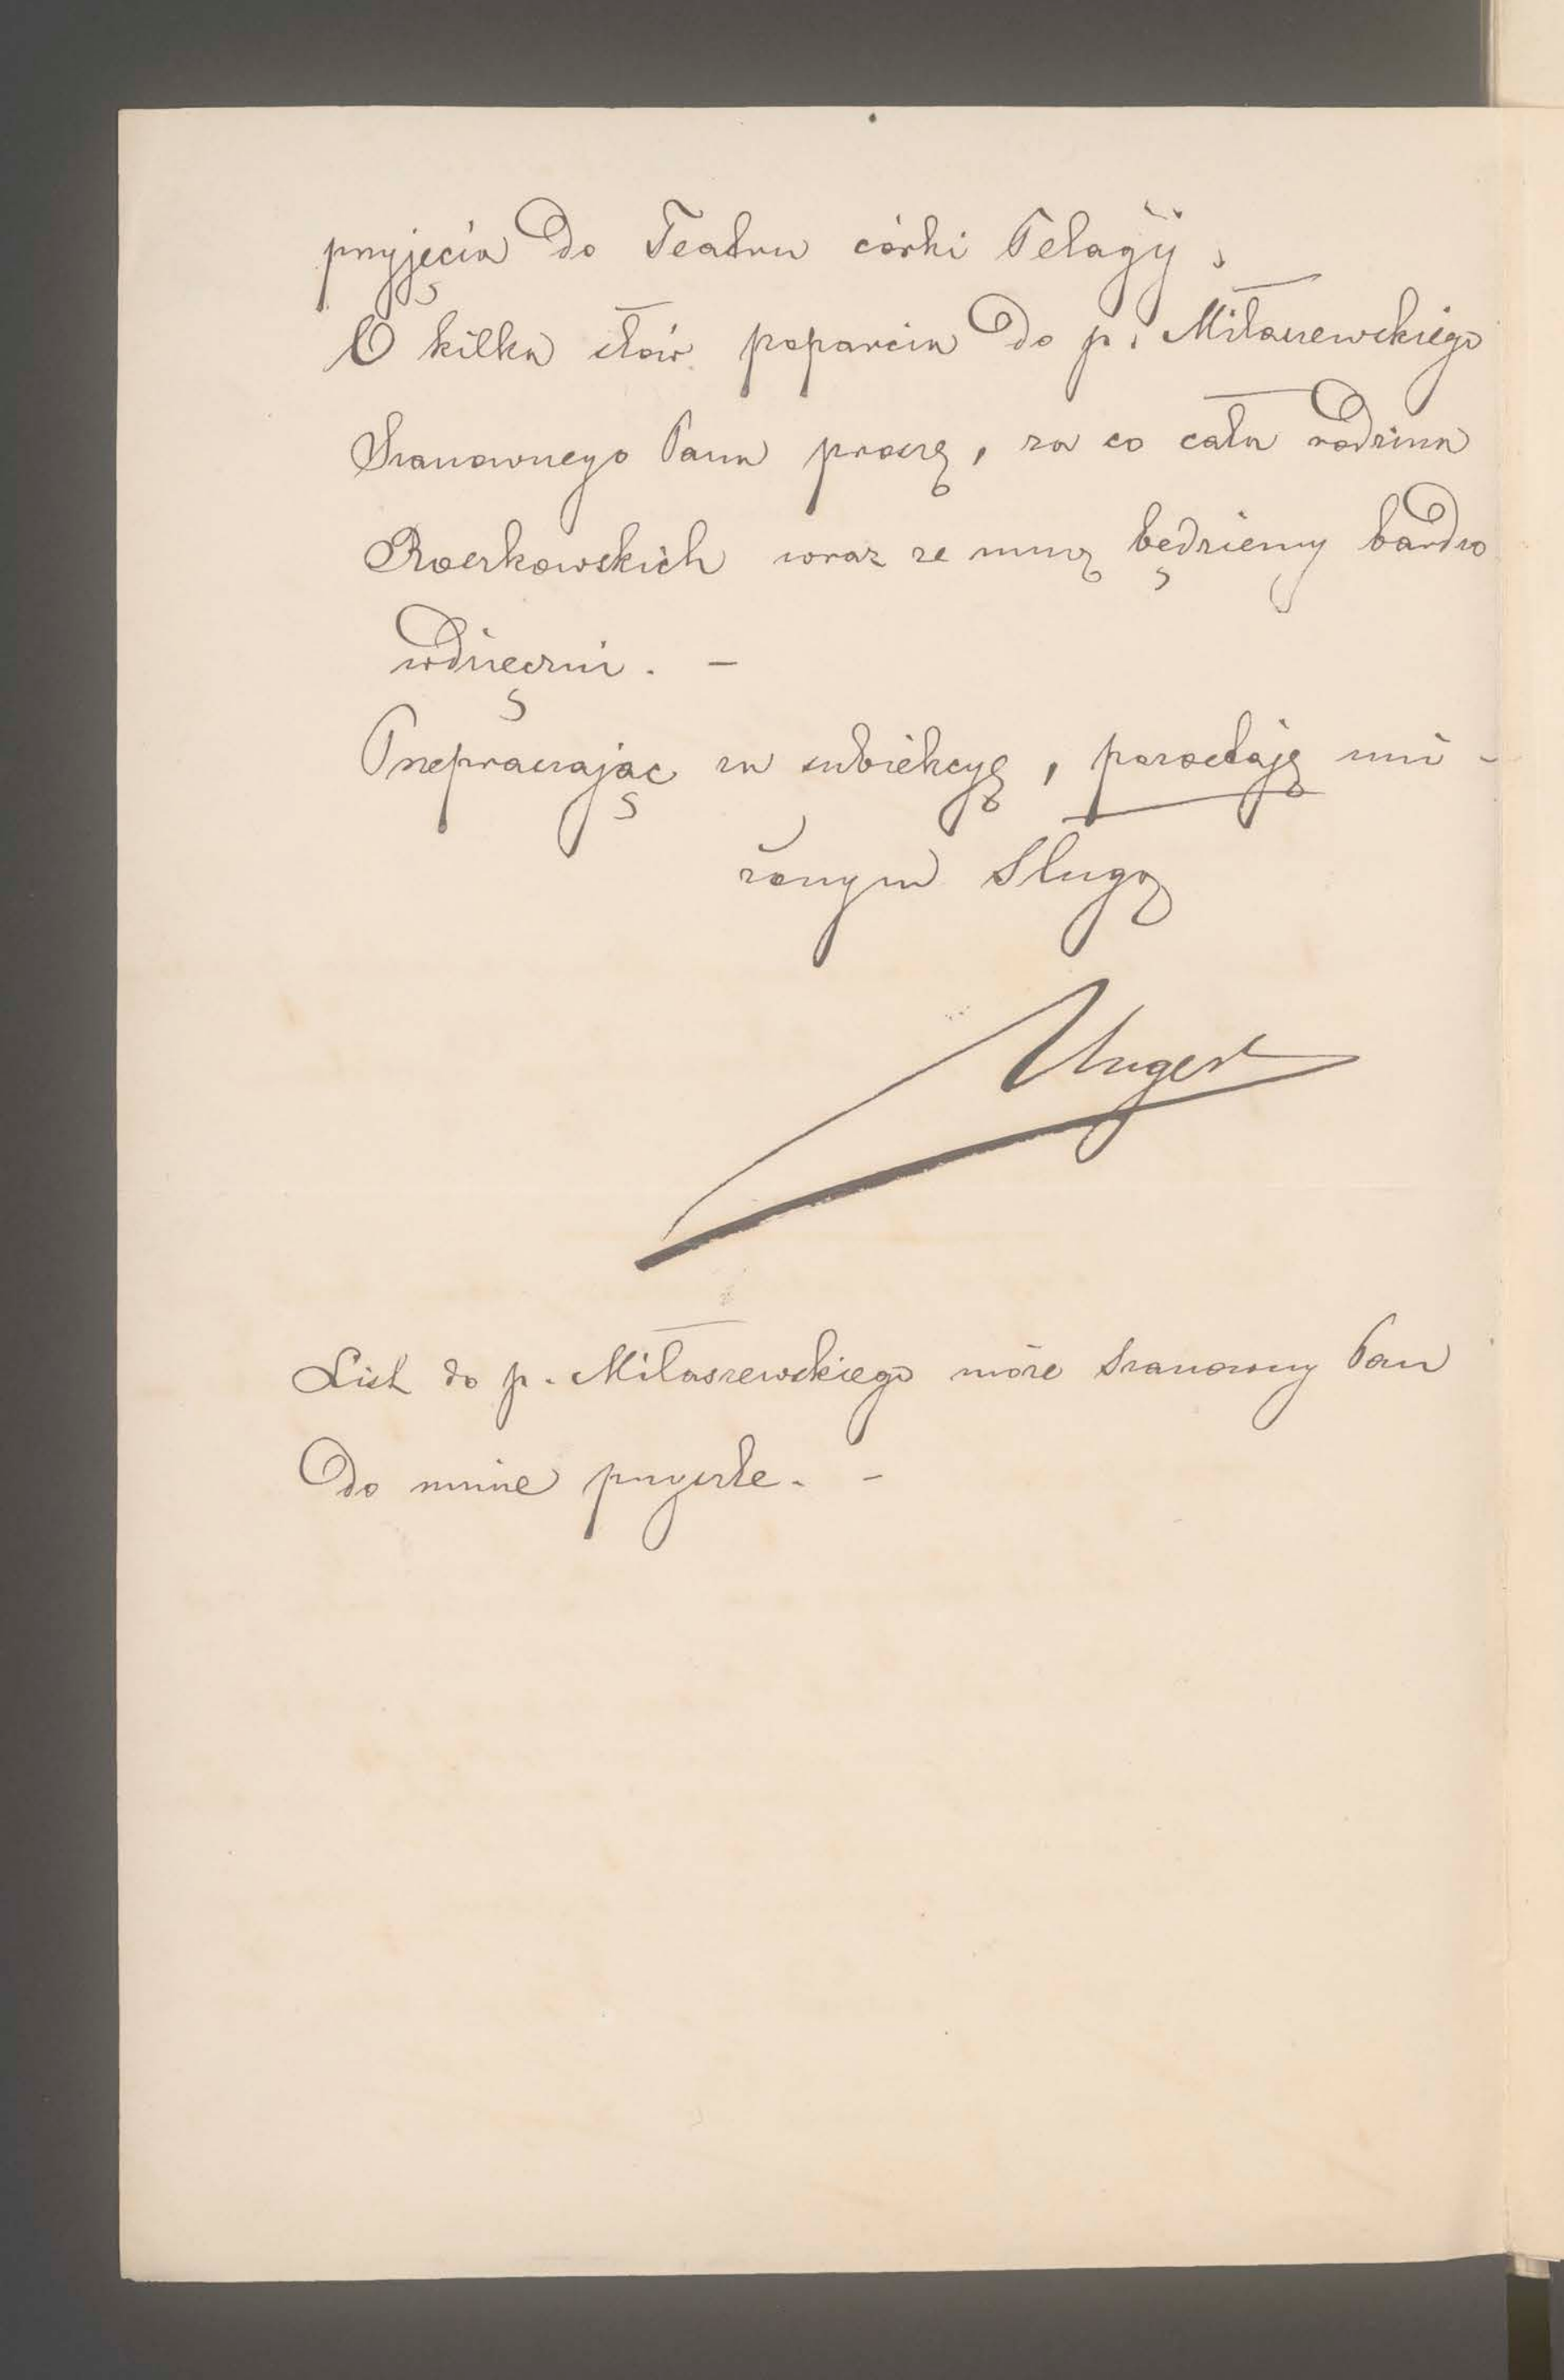 przyjęcia do Teatru córki Pelagÿ,
O kilka słów poparcia do p. Miłaszewskiego
Szanownego Pana proszę, za co cała rodzina
Roszkowskich wraz ze mną będziemy bardzo
wdzięczni. —
Przepraszając za subiekcyę, pozostaję uni-
żonym Sługą
Unger
List do p. Miłaszewskiego może Szanowny Pan
do mnie przyszle. —